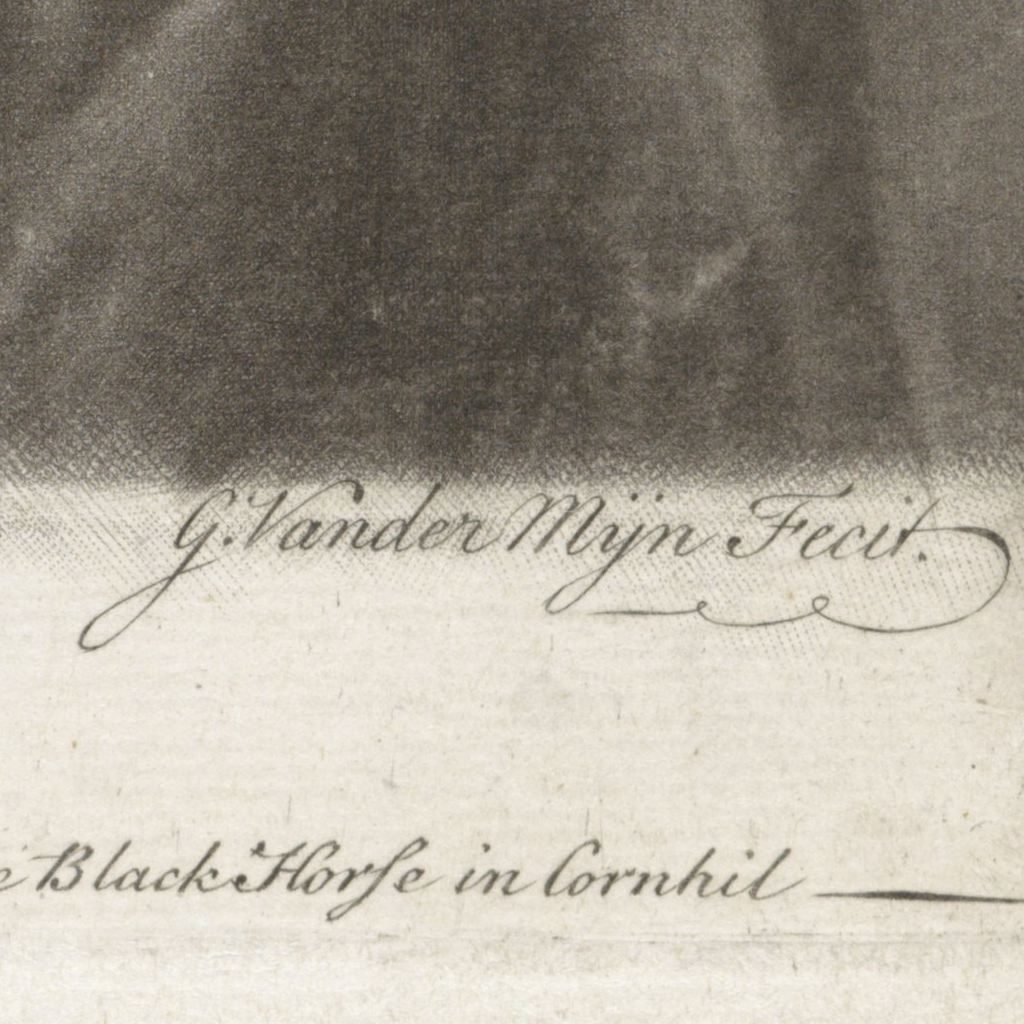 G. Vander Mÿn Fecit.
e Black Horſe in Cornhil